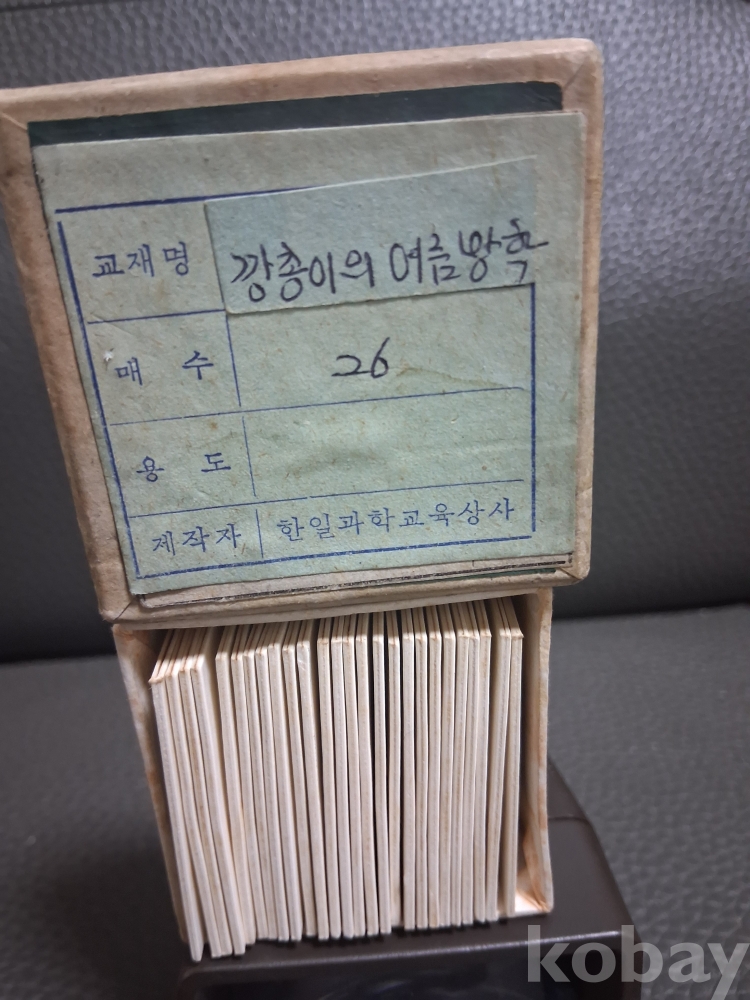 교재명 깡총이의 여름방학
매수 26
용도
제작자 한일과학교육상사
kobay